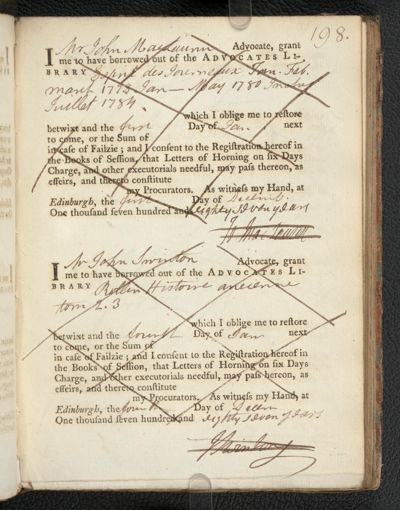 198.
I Mr John Maclaurin Advocate, grant
me to have borrowed out of the ADVOCATES LI-
BRARY Esprit des Journaux Jan. Feb.
march 1775 Jan — May 1780
Juillet 1784.
which I oblige me to restore
betwixt and the first Day of Jan. next
to come, or the Sum of
in case of Failzie; and I consent to the Registration hereof in
the Books of Session, that Letters of Horning on six Days
Charge, and other executorials needful, may pass thereon, as
effeirs, and thereto constitute
my Procurators. As witness my Hand, at
Edinburgh, the first Day of Decemb.
One thousand seven hundred and eighty seven years
Jo Maclaurin
I Mr John Swinton Advocate, grant
me to have borrowed out of the ADVOCATES LI-
BRARY Rollin Histoire ancienne
tom 2.3
which I oblige me to restore
betwixt and the fourth Day of Jan next
to come, or the Sum of
in case of Failzie; and I consent to the Registration hereof in
the Books of Session, that Letters of Horning on six Days
Charge, and other executorials needful, may pass hereon, as
effeirs, and thereto constitute
my Procurators. As witness my Hand, at
Edinburgh, the fourth Day of Decem
One thousand seven hundred and eighty seven years